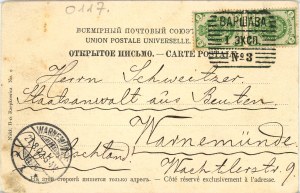 0117.
ВСЕМІРНЫЙ ПОЧТОВЫЙ СОЮЗ
UNION POSTALE UNIVERSELLE.
ОТКРЫТОЕ ПИСЬМО. — CARTE POSTALE
ВАРШАВА
1 ЭКСП.
№ 3
Herrn Schweitzer
Staatsanwalt aus Beuten
Warnemünde
WARNEMÜNDE
Wachtlerstr. 9
На этой сторонѣ пишется только адресъ. — Côté réservé exclusivement à l'adresse.